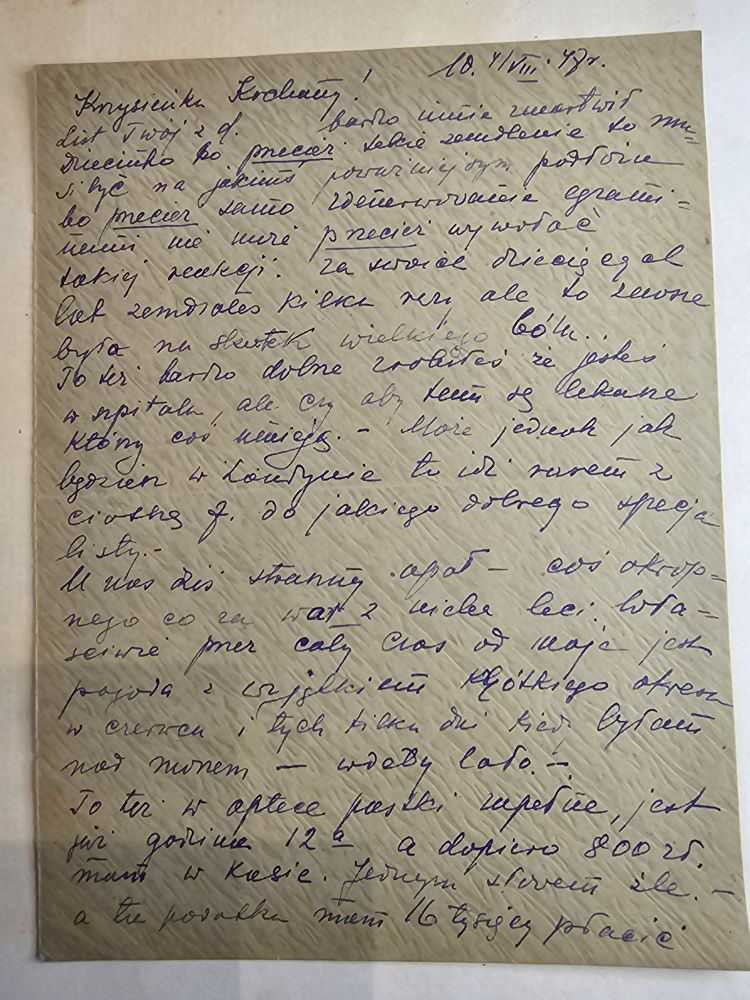 10. VIII. 47r.
Krzysieńku Kochany!
List Twój z d. bardzo mnie zmartwił
Dziecinko bo przecież takie zemdlenie to mu=
si być na jakimś poważniejszym podłożu
bo przecież samo zdenerwowanie egzami=
nami nie może przecież wywołać
takiej reakcji. Za swoich dziecięcych
lat zemdlałeś kilka razy ale to zawsze
było na skutek wielkiego bólu.
To też bardzo dobrze zrobiłeś że jesteś
w szpitalu, ale czy aby tam są lekarze
którzy coś umieją. – Może jednak jak
będziesz w Londynie to idź razem z
ciotką J. do jakiego dobrego specja
listy. –
U nas dziś straszny upał – coś okrop=
nego co za war z nieba leci. Wła=
ściwie przez cały czas od maja jest
pogoda z wyjątkiem krótkiego okresu
w czerwcu i tych kilku dni kiedy byłam
nad morzem – wdeby lato. –
To też w aptece pustki zupełne, jest
już godzina 12a a dopiero 800 zł.
mam w kasie. Jednym słowem źle. –
a tu podatku mam 16 tysięcy płacić